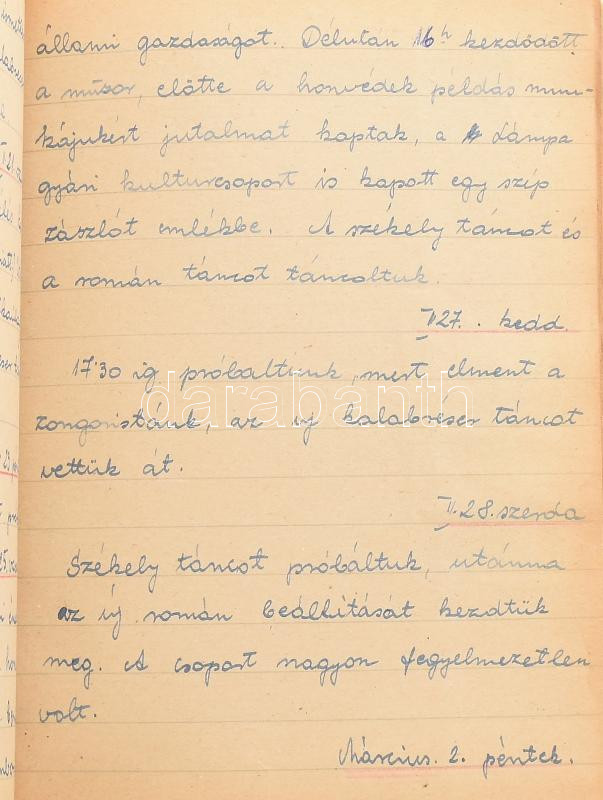 állami gazdaságot. Délután 16h kezdődött
a műsor, előtte a honvédek példás mun-
kájukért jutalmat kaptak, a Lámpa
gyári kulturcsoport is kapott egy szép
zászlót emlékbe. A székely táncot és
a román táncot táncoltuk.
II 27. kedd.
17.30 ig próbáltunk, mert elment a
zongoristánk, az új kalabréser táncot
vettük át.
II. 28. szerda
Székely táncot próbáltuk, utánna
az új román beállítását kezdtük
meg. A csoport nagyon fegyelmezetlen
volt.
Március. 2. péntek.
darabanth